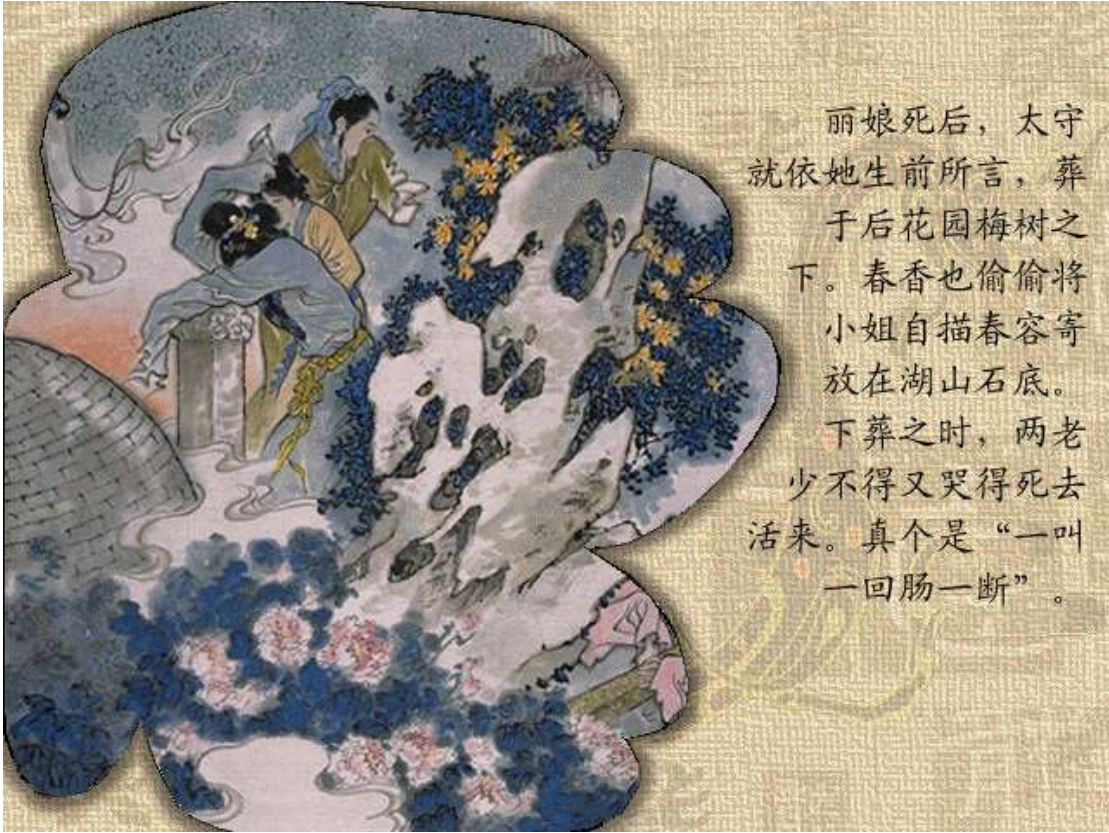 丽娘死后，太守
就依她生前所言，葬
于后花园梅树之
下。春香也偷偷将
小姐自描春容寄
放在湖山石底。
下葬之时，两老
少不得又哭得死去
活来。真个是“一叫
一回肠一断”。